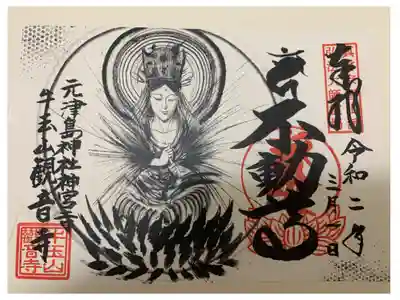 奉拝
令和二年
三月一日
不動尊
元津島神社神宮寺
牛玉山観音寺
牛玉山
觀音寺